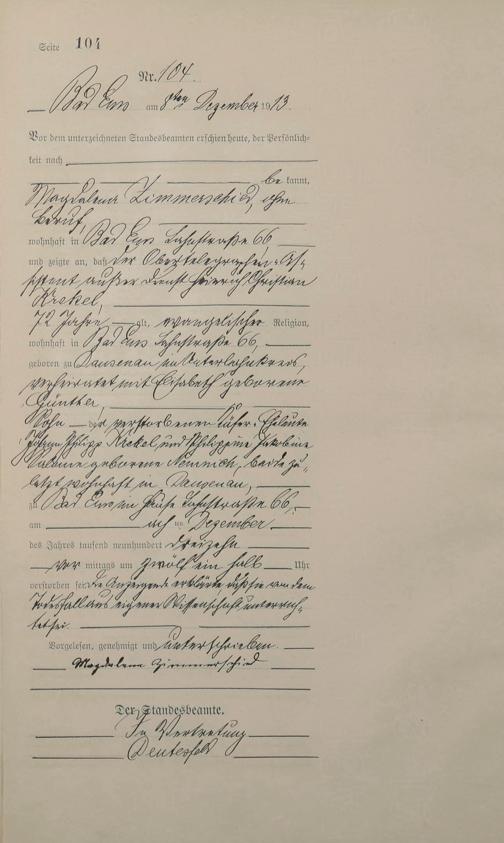 Seite 104
Nr. 104.
Bad Ems am 8ten Dezember 1913.
Vor dem unterzeichneten Standesbeamten erschien heute, der Persönlich-
keit nach
be kannt,
Magdalena Zimmerschied, ohne
Beruf,
wohnhaft in Bad Ems Lahnstraße 66,
und zeigte an, daß der Obertelegraphen-As-
sistent außer Dienst Heinrich Christian
Krekel,
72 Jahre alt, evangelischer Religion,
wohnhaft in Bad Ems Lahnstraße 66,
geboren zu Dausenau im Unterlahnkreis,
verheiratet mit Elisabeth geborene
Günther,
Sohn der verstorbenen Küfer-Eheleute
Johann Philipp Krekel und Philippine Jakobine
geborene Nemnich, beide zu-
letzt wohnhaft in Dausenau,
zu Bad Ems im Hause Lahnstraße 66,
am acht en Dezember
des Jahres tausend neunhundert dreizehn
vor mittags um zwölf ein halb Uhr
verstorben sei. Die Anzeigende erklärte, daß sie von dem
Todesfall aus eigener Wissenschaft unterrich-
tet sei.
Vorgelesen, genehmigt und unterschrieben
Magdalena Zimmerschied
Der Standesbeamte.
In Vertretung